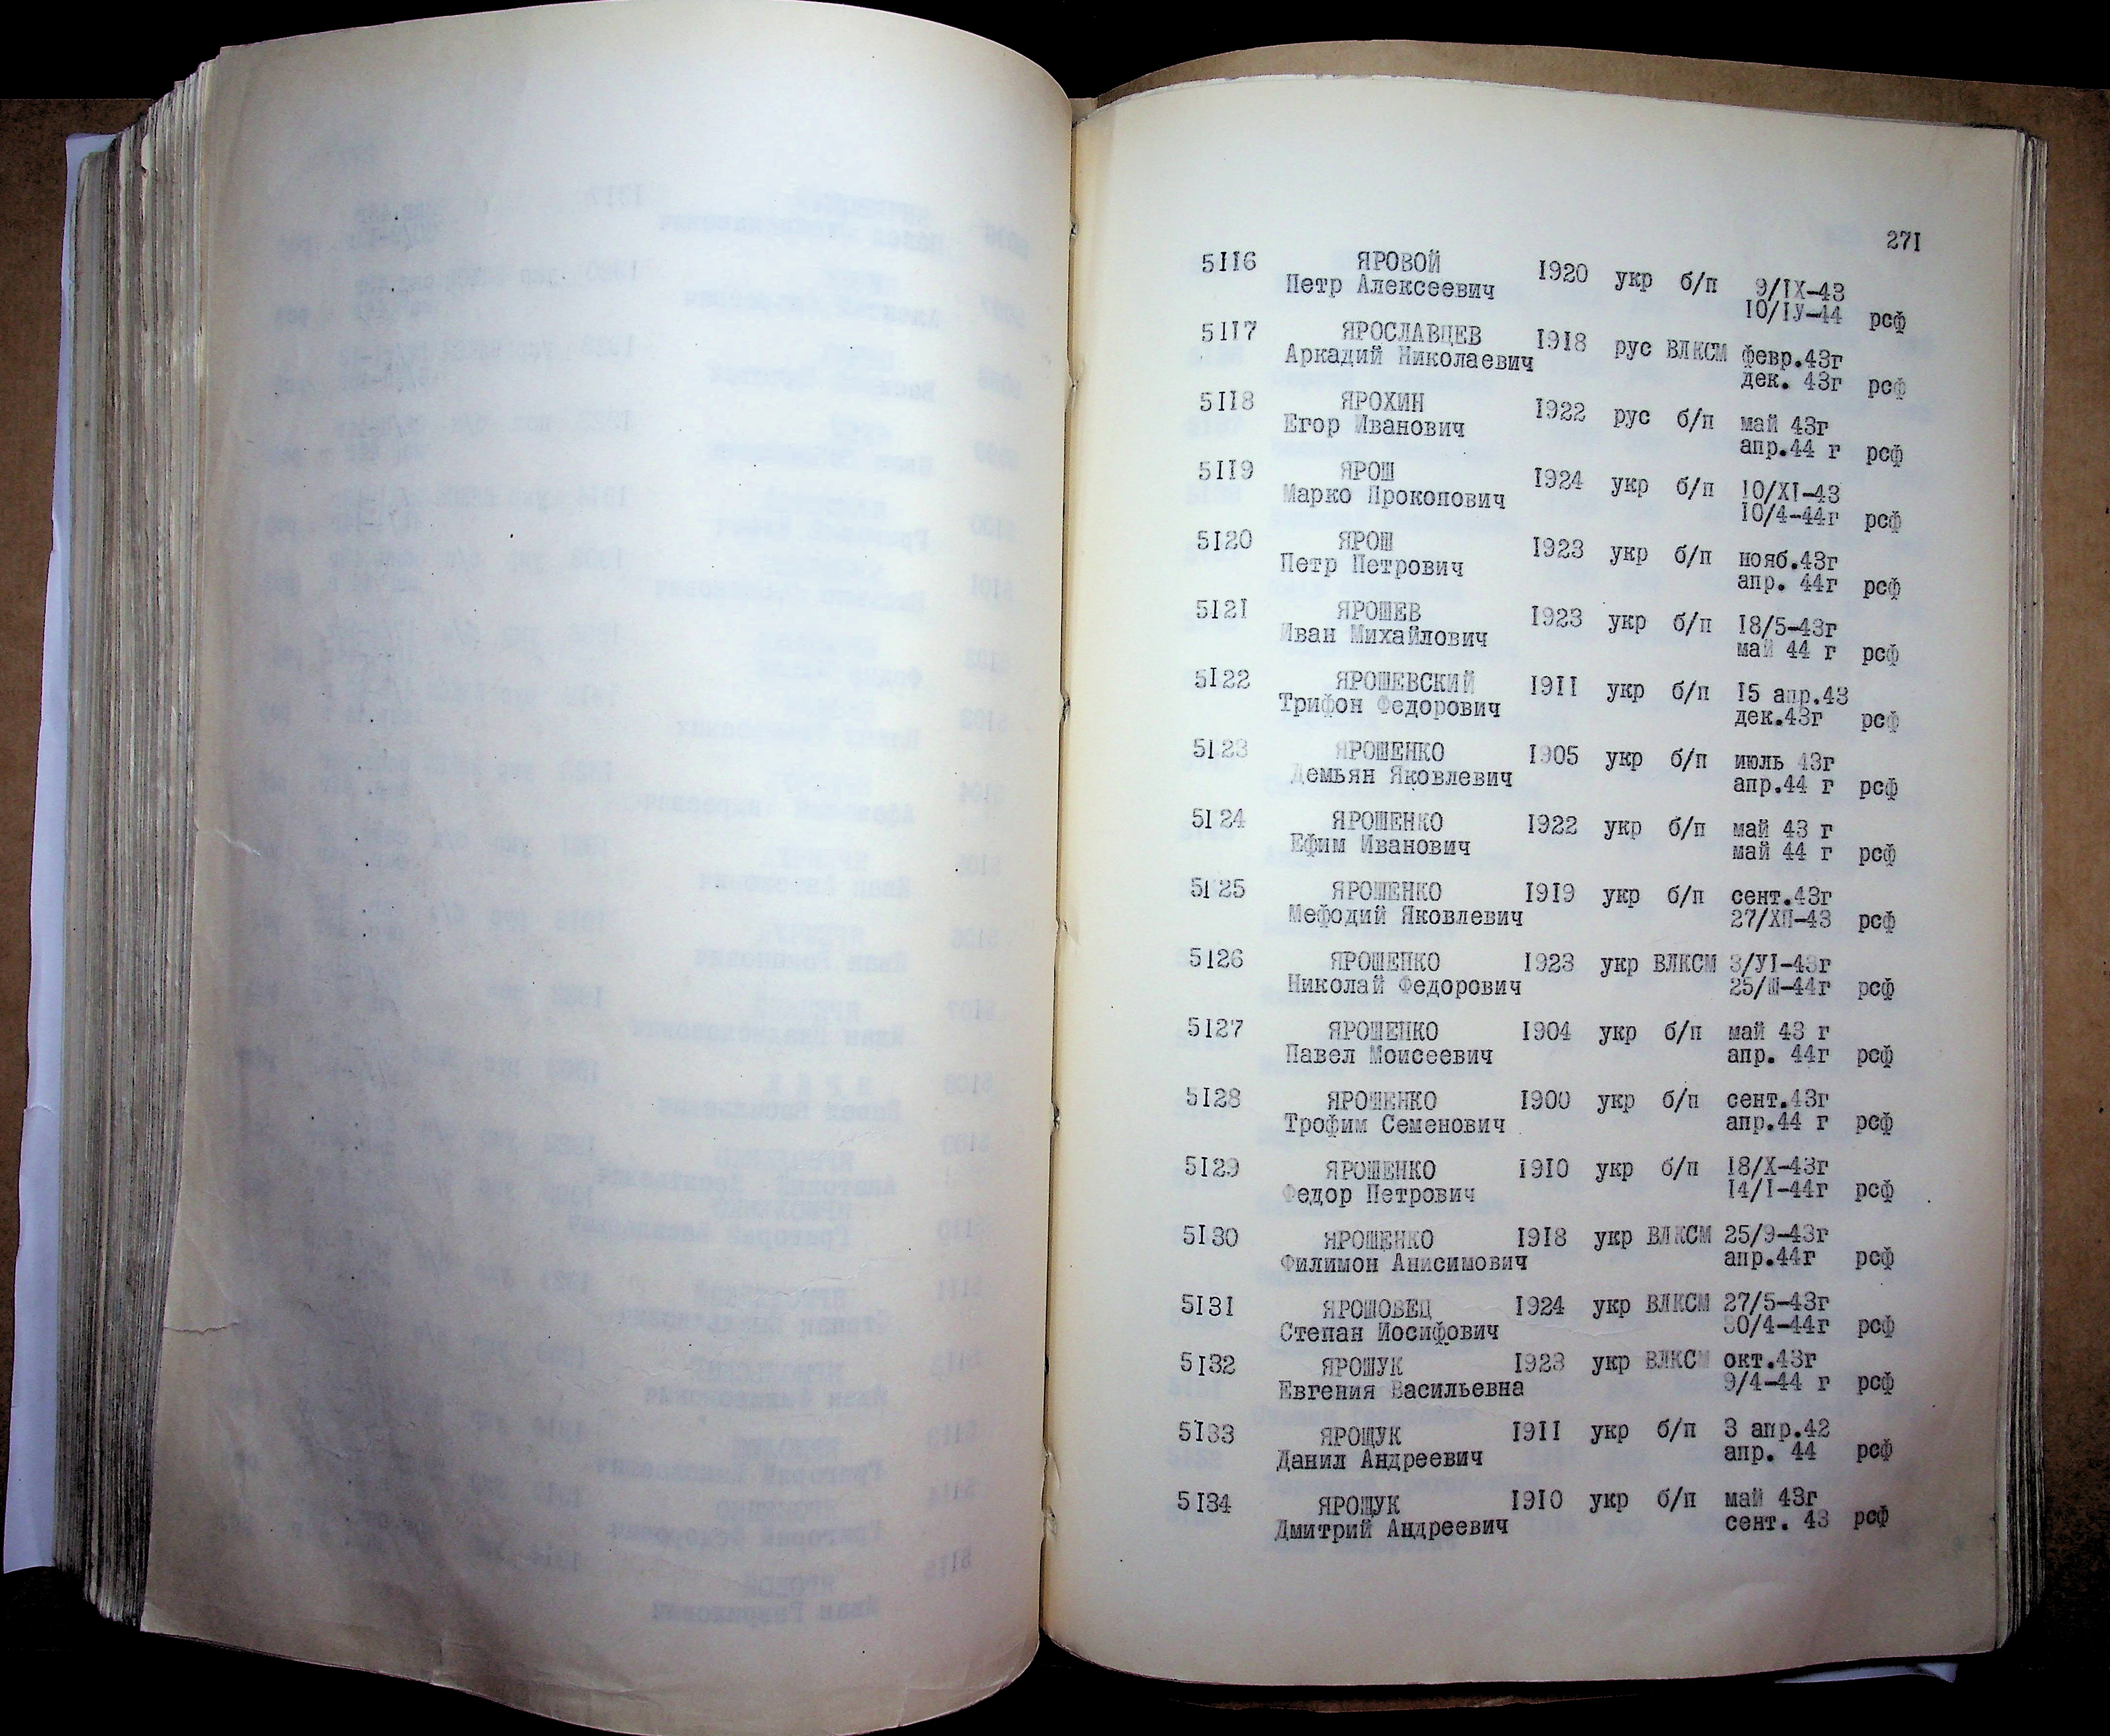 271
5116 ЯРОВОЙ 1920 укр б/п 9/IX-43
Петр Алексеевич 10/IУ-44 рсф
5117 ЯРОСЛАВЦЕВ 1918 рус ВЛКСМ февр.43г
Аркадий Николаевич дек. 43г рсф
5118 ЯРОХИН 1922 рус б/п май 43г
Егор Иванович апр.44 г рсф
5119 ЯРОШ 1924 укр б/п 10/XI-43
Марко Прокопович 10/4-44г рсф
5120 ЯРОШ 1923 укр б/п нояб.43г
Петр Петрович апр. 44г рсф
5121 ЯРОШЕВ 1923 укр б/п 18/5-43г
Иван Михайлович май 44 г рсф
5122 ЯРОШЕВСКИЙ 1911 укр б/п 15 апр.43
Трифон Федорович дек.43г рсф
5123 ЯРОШЕНКО 1905 укр б/п июль 43г
Демьян Яковлевич апр.44 г рсф
5124 ЯРОШЕНКО 1922 укр б/п май 43 г
Ефим Иванович май 44 г рсф
5125 ЯРОШЕНКО 1919 укр б/п сент.43г
Мефодий Яковлевич 27/ХП-43 рсф
5126 ЯРОШЕНКО 1923 укр ВЛКСМ 3/УI-43г
Николай Федорович 25/Ш-44г рсф
5127 ЯРОШЕНКО 1904 укр б/п май 43 г
Павел Моисеевич апр. 44г рсф
5128 ЯРОШЕНКО 1900 укр б/п сент.43г
Трофим Семенович апр.44 г рсф
5129 ЯРОШЕНКО 1910 укр б/п 18/X-43г
Федор Петрович 14/I-44г рсф
5130 ЯРОШЕНКО 1918 укр ВЛКСМ 25/9-43г
Филимон Анисимович апр.44г рсф
5131 ЯРОШОВЕЦ 1924 укр ВЛКСМ 27/5-43г
Степан Иосифович 30/4-44г рсф
5132 ЯРОШУК 1923 укр ВЛКСМ окт.43г
Евгения Васильевна 9/4-44 г рсф
5133 ЯРОЩУК 1911 укр б/п 3 апр.42
Данил Андреевич апр. 44 рсф
5134 ЯРОЩУК 1910 укр б/п май 43г
Дмитрий Андреевич сент. 43 рсф